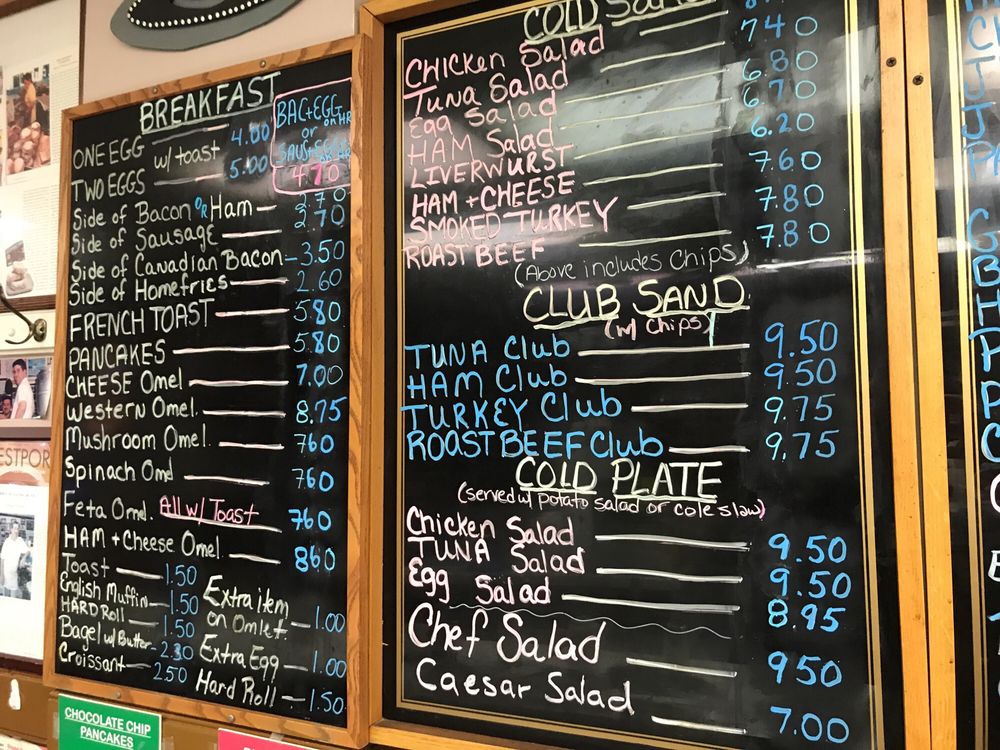 BREAKFAST
ONE EGG w/ toast 4.00
TWO EGGS 5.00
BAC+EGG
ON HR
or
SAUS+EGG
ON HR
4.70
Side of Bacon OR Ham 2.70
Side of Sausage 2.70
Side of Canadian Bacon 3.50
Side of Homefries 2.60
FRENCH TOAST 5.80
PANCAKES 5.80
CHEESE Omel 7.00
Western Omel. 8.75
Mushroom Omel. 760
Spinach Oml 760
Feta Oml. All w/ Toast 760
HAM + Cheese Omel. 860
Toast 1.50
English Muffin 1.50
HARD Roll 1.50
Bagel w/ Butter 2.30
Croissant 2.50
Extra item
on Omlet. 1.00
Extra Egg 1.00
Hard Roll 1.50
CHOCOLATE CHIP
PANCAKES
COLD
Chicken Salad 740
Tuna Salad
Egg Salad 6.80
HAM Salad 6.70
LIVERWURST 6.20
HAM + CHEESE 7.60
SMOKED TURKEY 7.80
ROAST BEEF 7.80
(Above includes chips)
CLUB SAND
(w/ chips)
TUNA Club 9.50
HAM Club 9.50
TURKEY Club 9.75
ROAST BEEF Club 9.75
COLD PLATE
(served w/ potato salad or cole slaw)
Chicken Salad 9.50
TUNA Salad 9.50
Egg Salad 8.95
Chef Salad 950
Caesar Salad 7.00